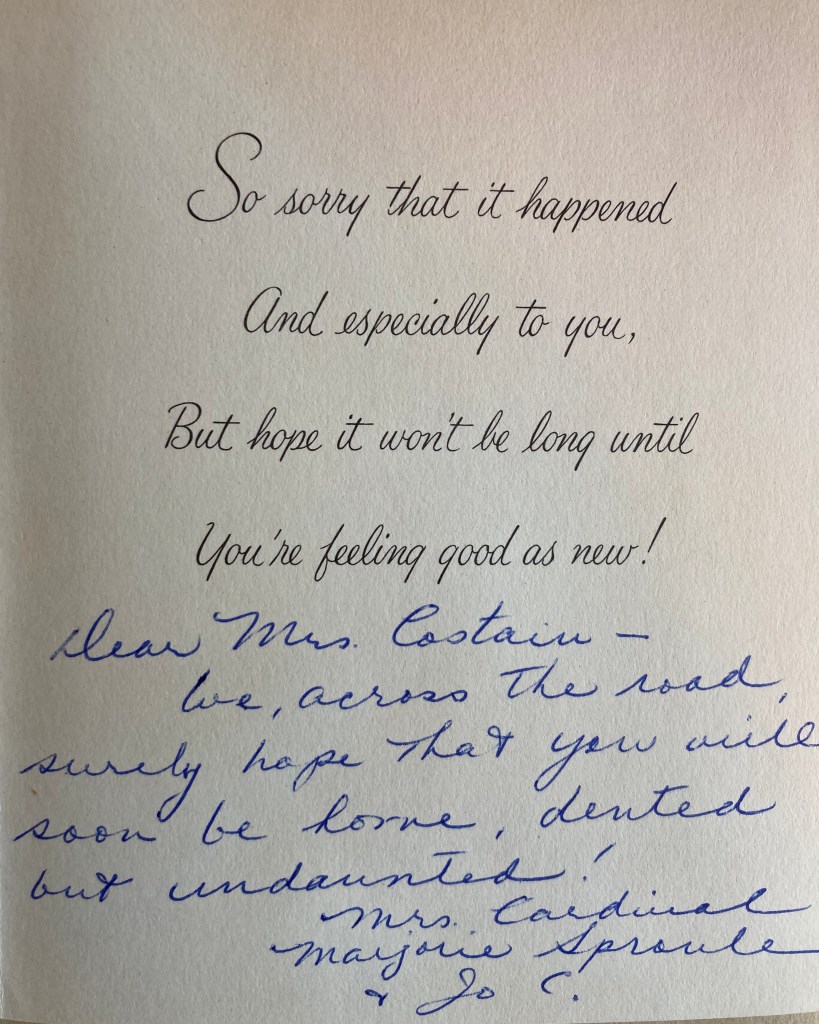 So sorry that it happened
And especially to you,
But hope it won't be long until
You're feeling good as new!
Dear Mrs. Costain –
We, across the road,
surely hope that you will
soon be home, dented
but undaunted!
Mrs. Cardinal
Marjorie Sproule
& Jo C.